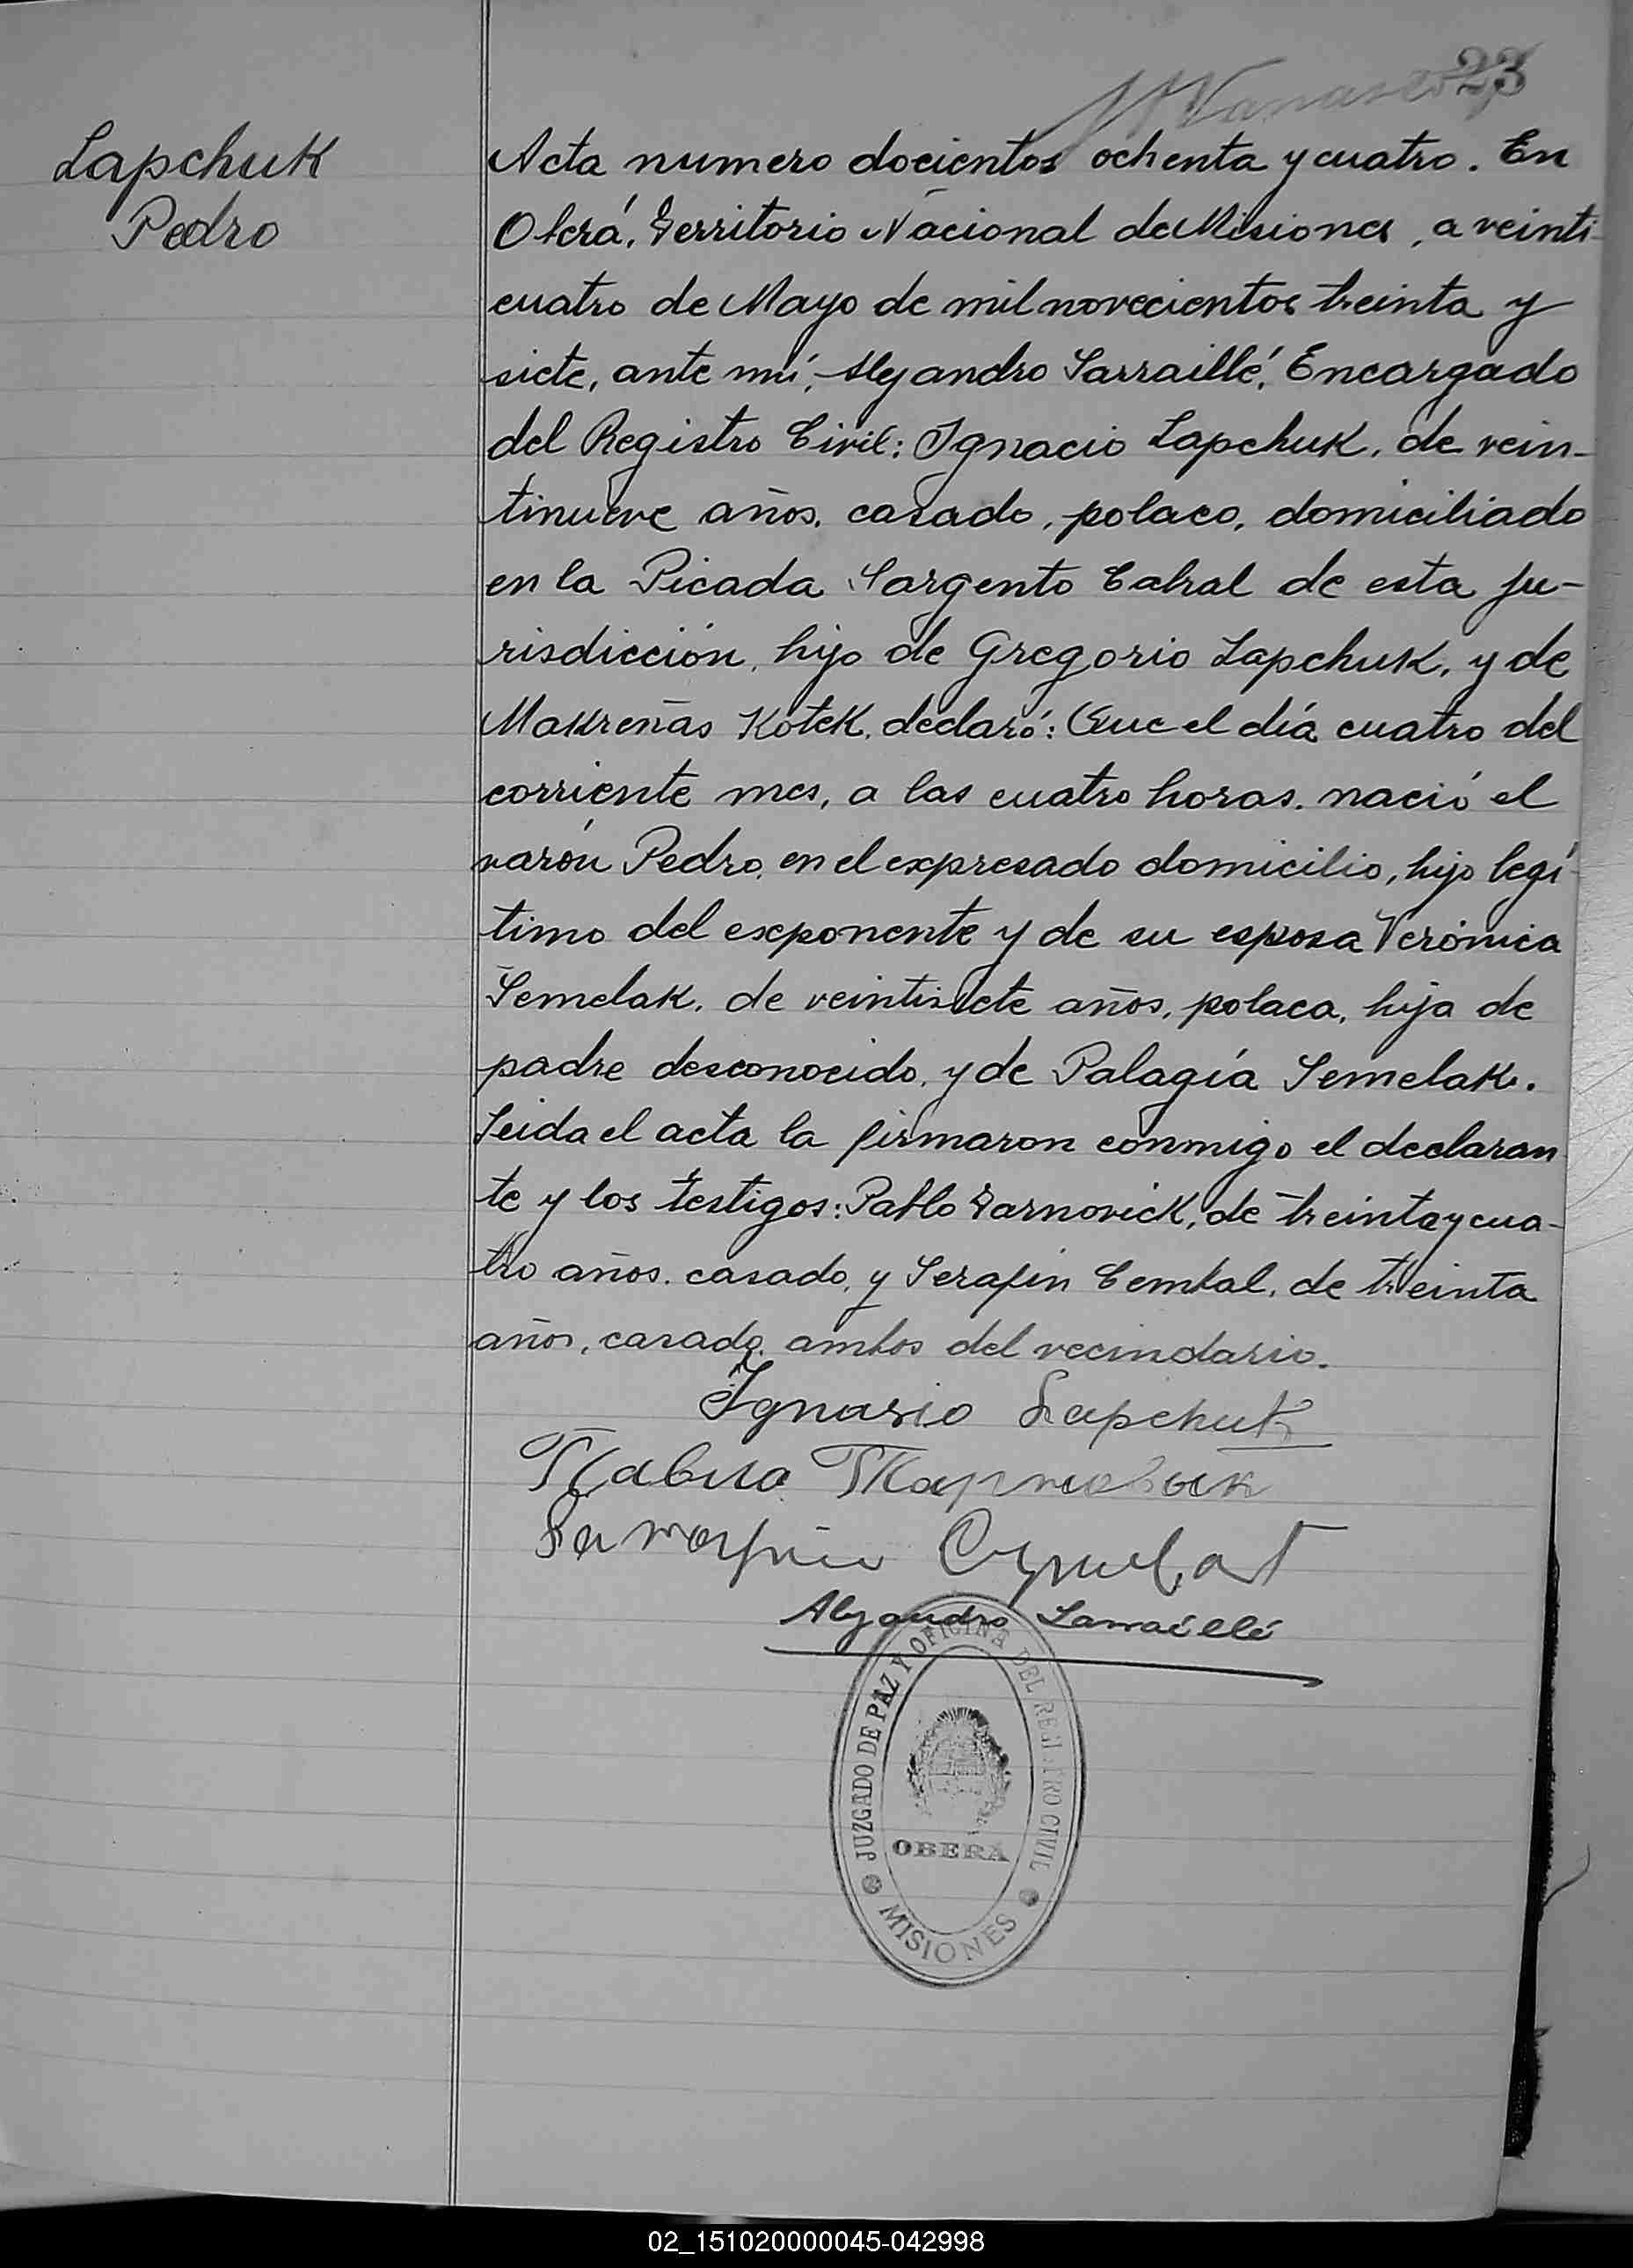 23
Lapchuk
Pedro
Acta numero docientos ochenta y cuatro. En
Oberá, Territorio Nacional de Misiones, a veinti-
cuatro de Mayo de mil novecientos treinta y
siete, ante mí, Alejandro Larraillé, Encargado
del Registro Civil: Ignacio Lapchuk, de vein-
tinueve años, casado, polaco, domiciliado
en la Picada Sargento Cabral de esta ju-
risdicción, hijo de Gregorio Lapchuk, y de
Makreñas Kotek, declaró: Que el día cuatro del
corriente mes, a las cuatro horas, nació el
varón Pedro, en el expresado domicilio, hijo legí-
timo del exponente y de su esposa Verónica
Semelak, de veintisiete años, polaca, hija de
padre desconocido, y de Palagía Semelak.
Leida el acta la firmaron conmigo el declaran
te y los testigos: Pablo Tarnovick, de treinta y cua-
tro años, casado, y Serafin Cembal, de treinta
años, casado, ambos del vecindario.
Ignasio Lapchuk
Павло Тарновик
Alejandro Larraillé
JUZGADO DE PAZ Y OFICINA DEL REGISTRO CIVIL
OBERÁ
MISIONES
02_151020000045-042998